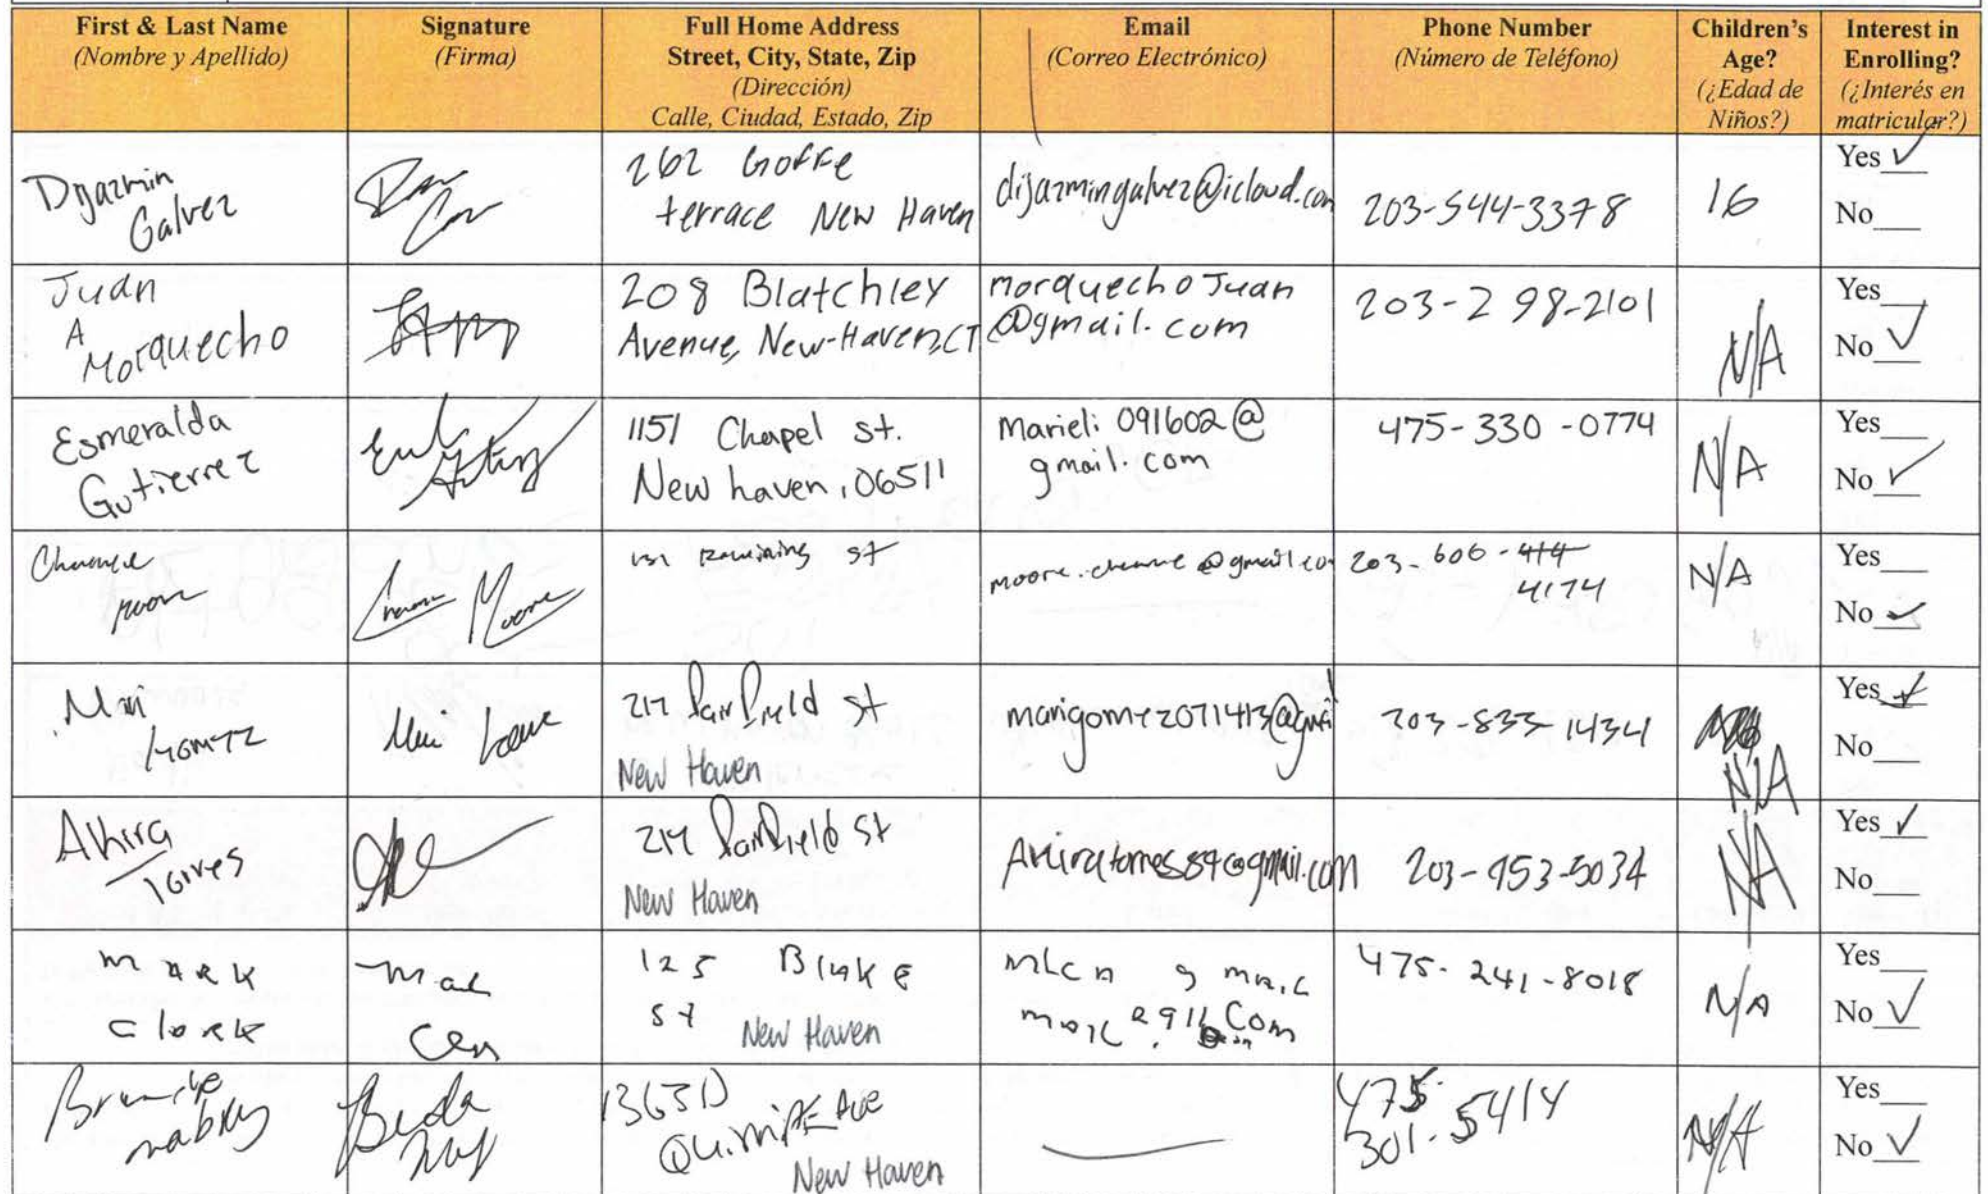 First & Last Name
(Nombre y Apellido)
Signature
(Firma)
Full Home Address
Street, City, State, Zip
(Dirección)
Calle, Ciudad, Estado, Zip
Email
(Correo Electrónico)
Phone Number
(Número de Teléfono)
Children's
Age?
(¿Edad de
Niños?)
Interest in
Enrolling?
(¿Interés en
matricular?)
Dijazmin
Galvez
262 Goffe
terrace New Haven
dijazmingalvez@icloud.com
203-544-3378
16
Yes ✓
No
Juan
A
Morquecho
208 Blatchley
Avenue, New-Haven, CT
morquecho Juan
@gmail.com
203-298-2101
N/A
Yes
No ✓
Esmeralda
Gutierrez
1151 Chapel st.
New haven, 06511
Marieli 091602@
gmail.com
475-330-0774
N/A
Yes
No ✓
Moore
st
203-606-414
4174
N/A
Yes
No ✓
Gomez
Fairfield st
New Haven
marigomez071413@gmail
203-833-1434
N/A
Yes ✓
No
Akira
Torres
Fairfield st
New Haven
Akiratorres84@gmail.com
203-953-5034
N/A
Yes ✓
No
Mark
Clark
125 Blake
st New Haven
475-241-8018
N/A
Yes
No ✓
Ave
New Haven
475-
301-5414
N/A
Yes
No ✓